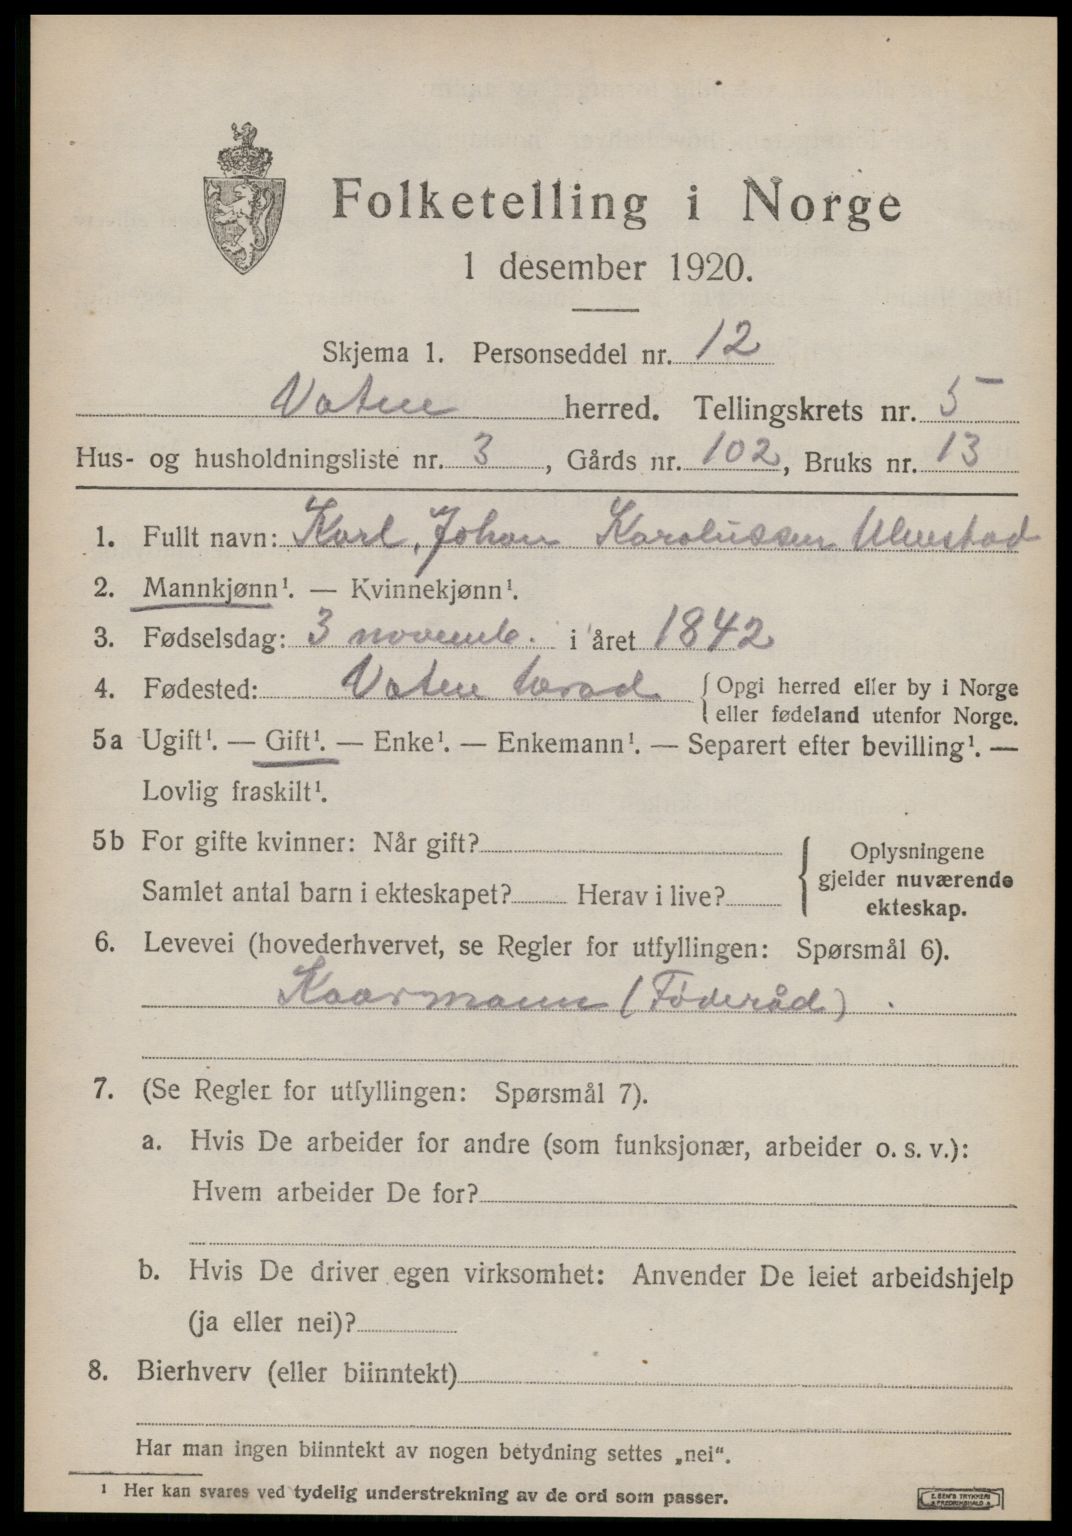 Folketelling i Norge
1 desember 1920.
Skjema 1. Personseddel nr. 12
Vatne herred. Tellingskrets nr. 5
Hus- og husholdningsliste nr. 3, Gårds nr. 102, Bruks nr. 13
1. Fullt navn: Karl, Johan Karolussen Ulvestad
2. Mannkjønn¹. — Kvinnekjønn¹.
3. Fødselsdag: 3 novemb. i året 1842
4. Fødested: Vatne herad { Opgi herred eller by i Norge
eller fødeland utenfor Norge.
5a Ugift¹. — Gift¹. — Enke¹. — Enkemann¹. — Separert efter bevilling¹. —
Lovlig fraskilt¹.
5b For gifte kvinner: Når gift?
Samlet antal barn i ekteskapet? Herav i live?
{ Oplysningene
gjelder nuværende
ekteskap.
6. Levevei (hovederhvervet, se Regler for utfyllingen: Spørsmål 6).
Kaarmann (Föderåd)
7. (Se Regler for utfyllingen: Spørsmål 7).
a. Hvis De arbeider for andre (som funksjonær, arbeider o. s. v.):
Hvem arbeider De for?
b. Hvis De driver egen virksomhet: Anvender De leiet arbeidshjelp
(ja eller nei)?
8. Bierhverv (eller biinntekt)
Har man ingen biinntekt av nogen betydning settes „nei“.
¹ Her kan svares ved tydelig understrekning av de ord som passer.